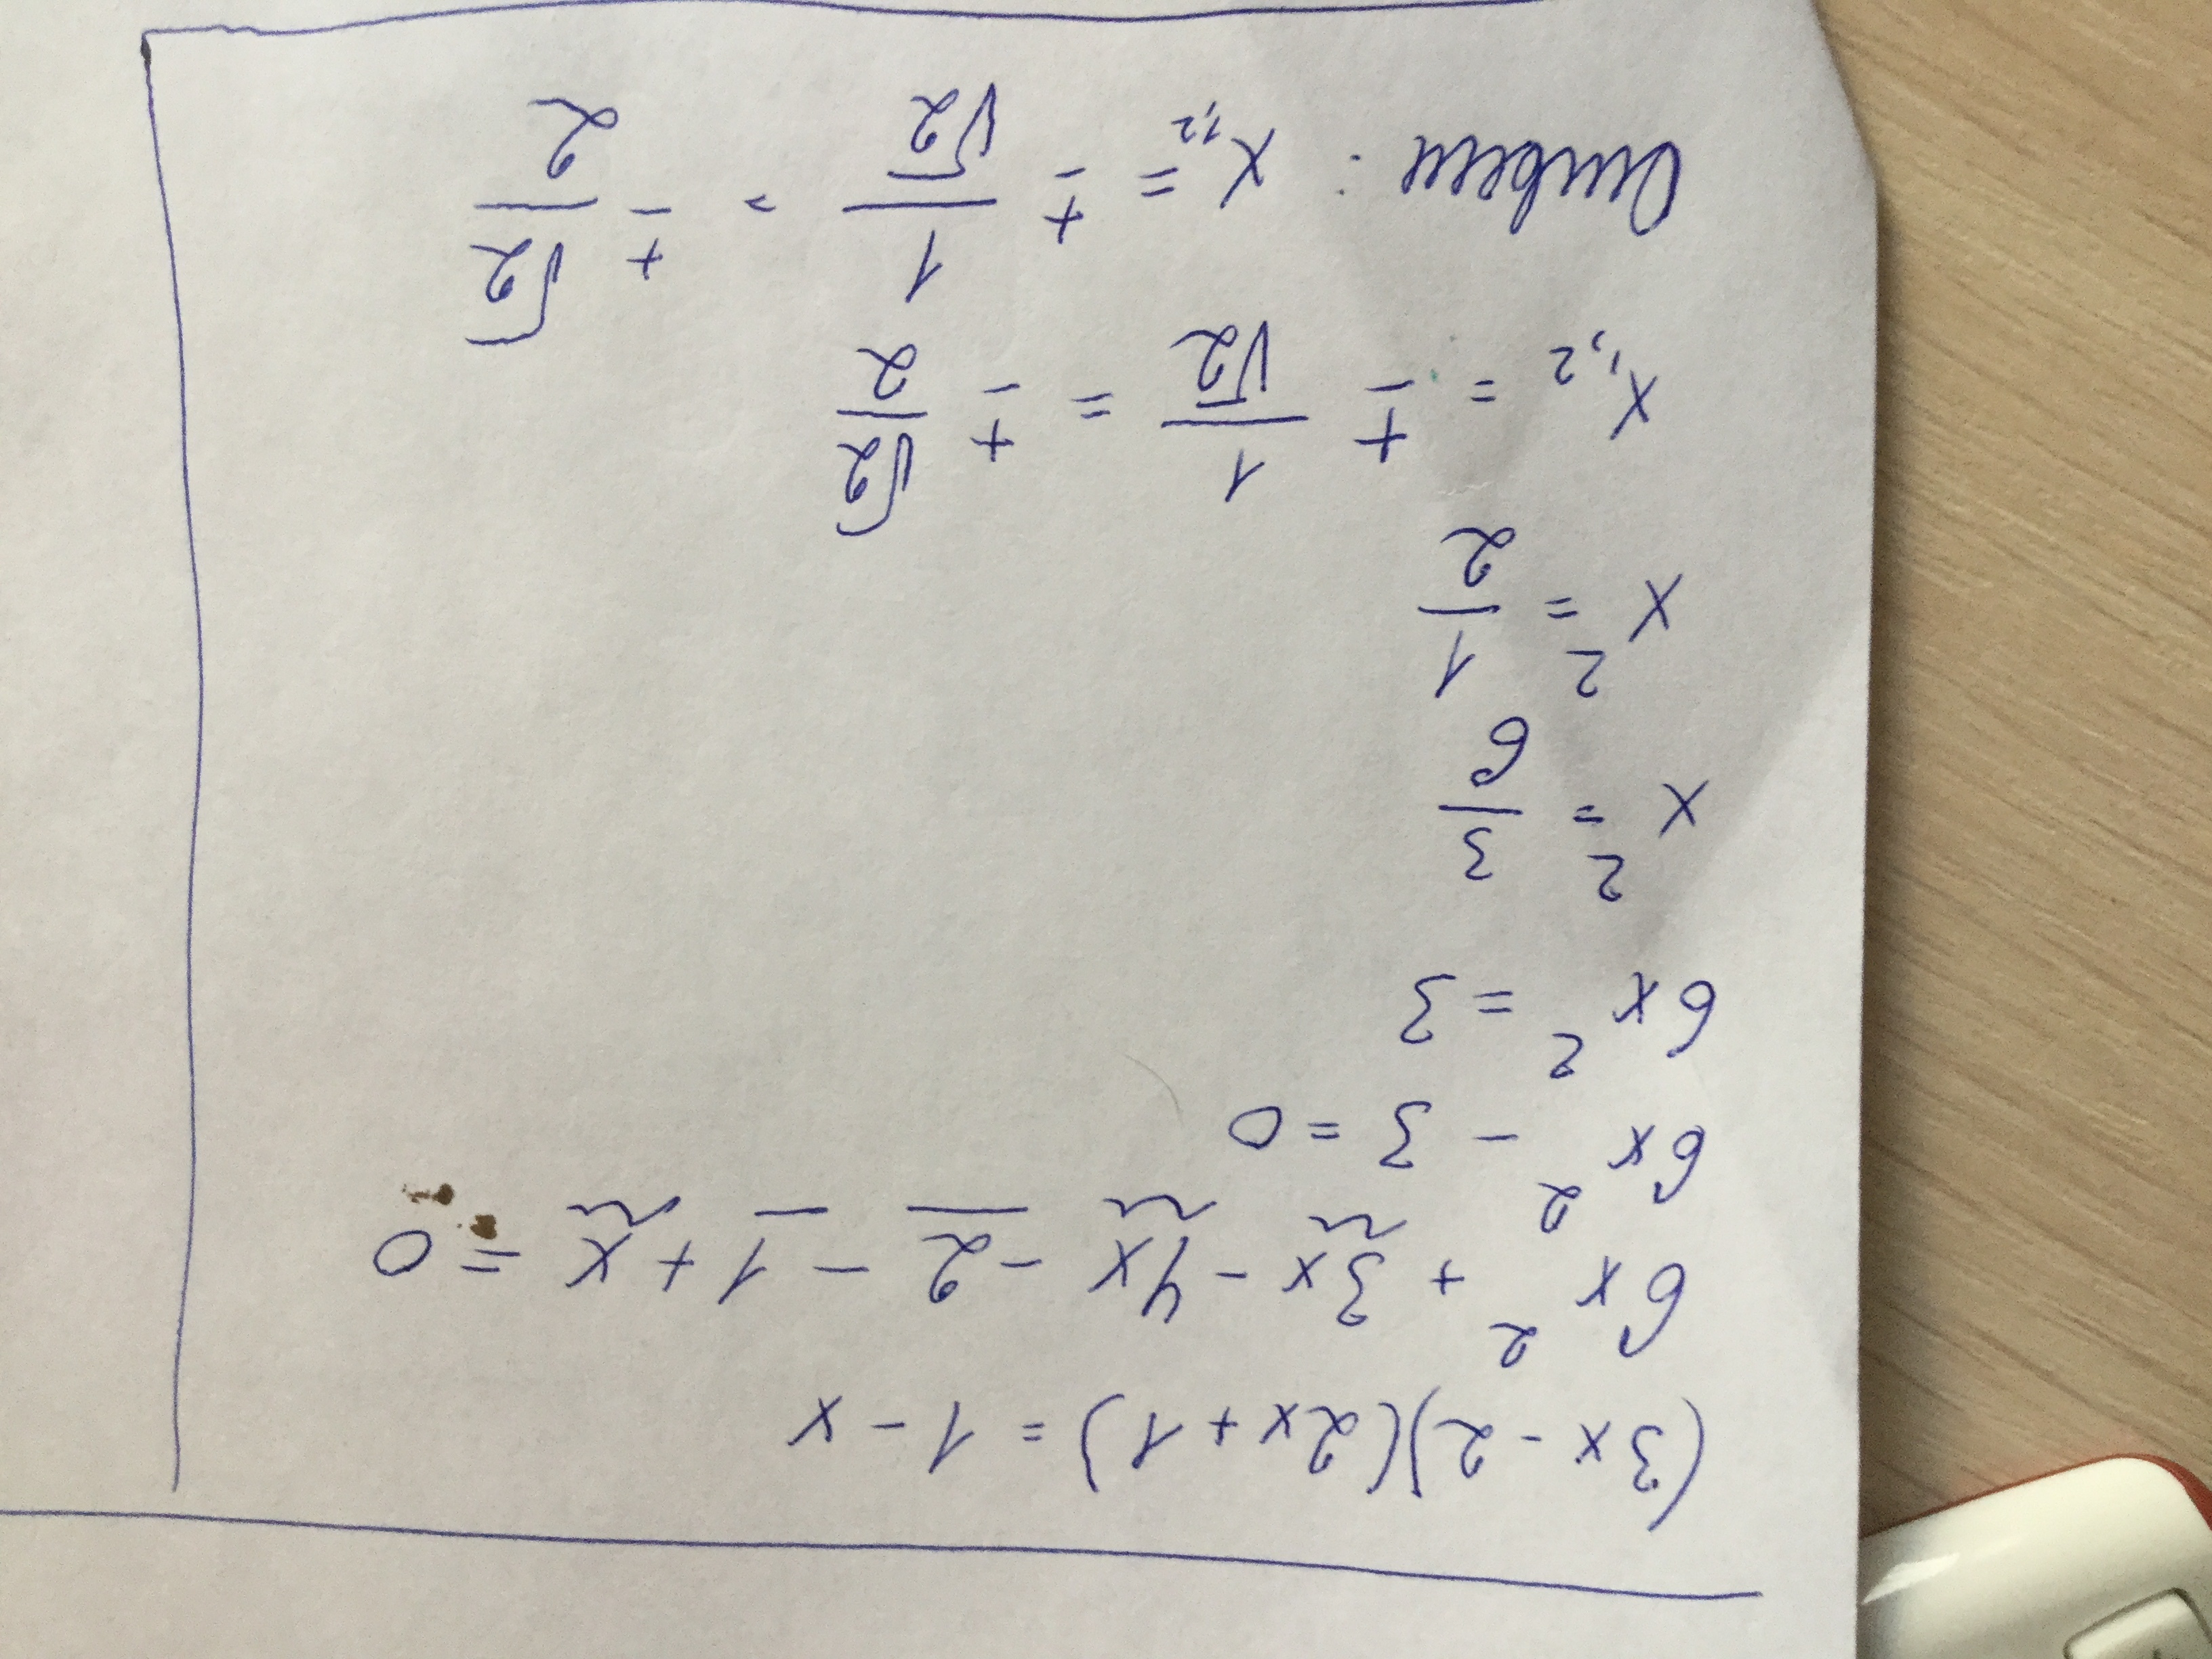 (3x - 2)(2x + 1) = 1 - x
6x² + 3x - 4x - 2 - 1 + x = 0
6x² - 3 = 0
6x² = 3
x² = 3/6
x² = 1/2
x₁,₂ = ± 1/√2 = ± √2/2
Ответ: x₁,₂ = ± 1/√2 = ± √2/2